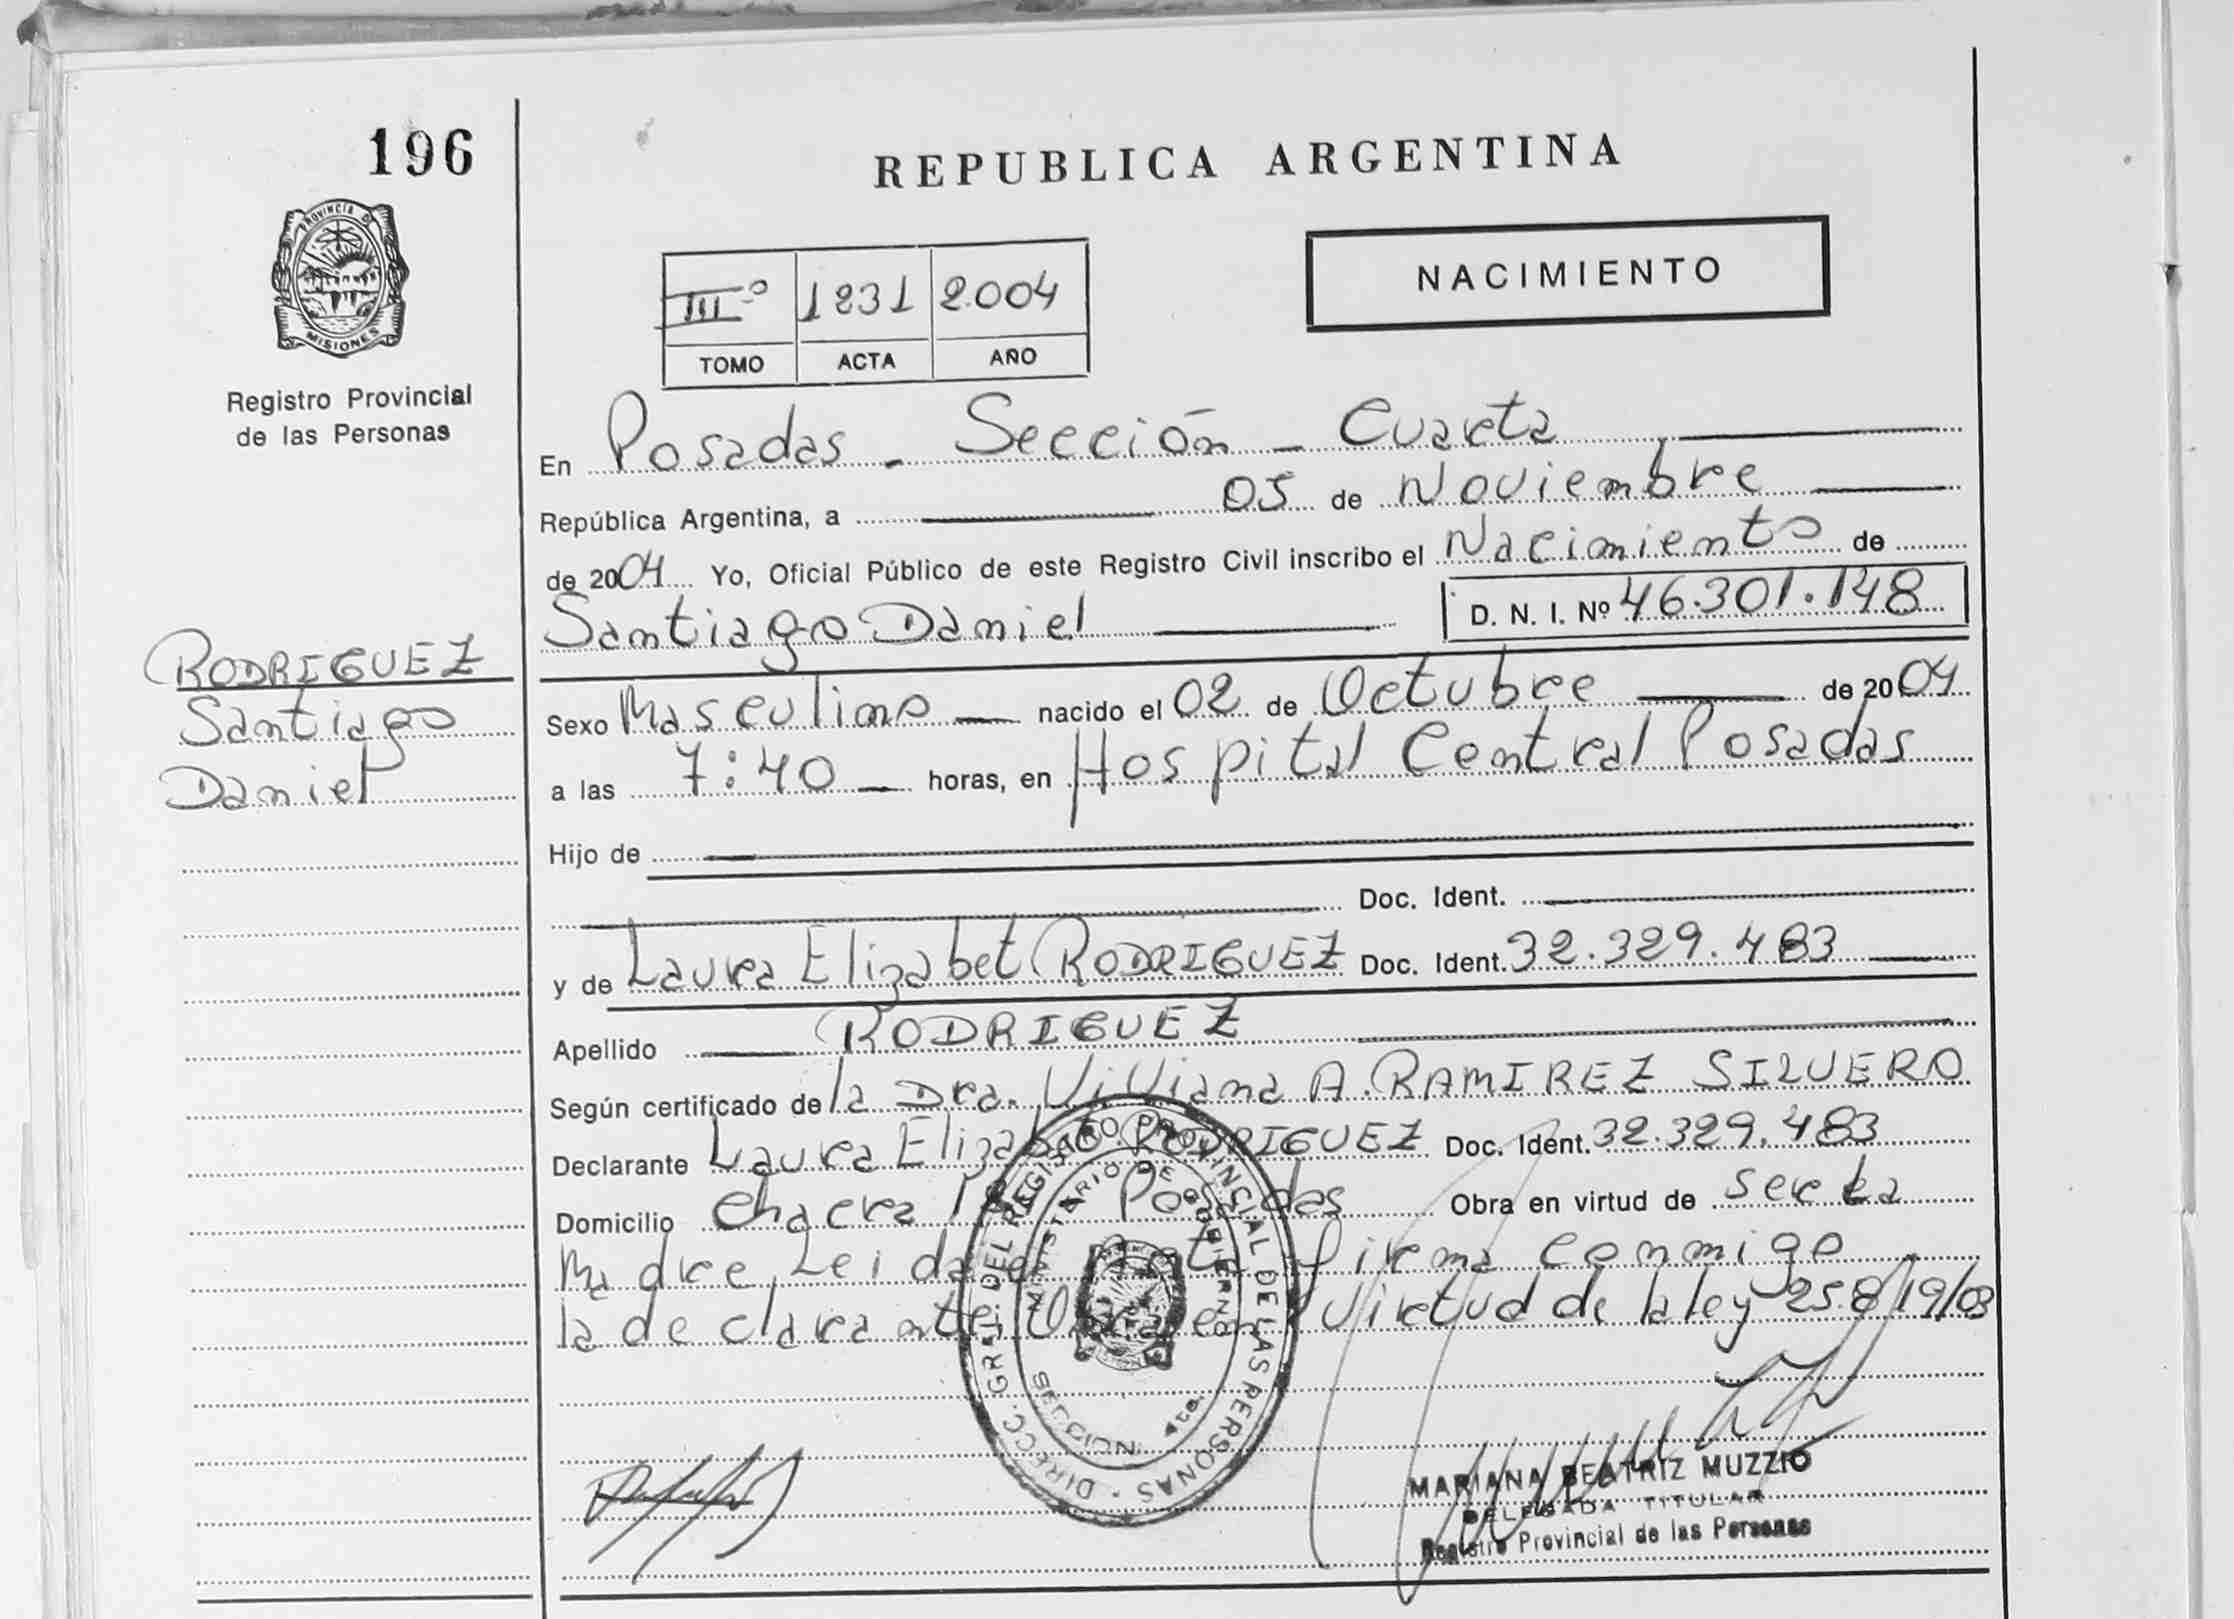 196
REPUBLICA ARGENTINA
PROVINCIA D
MISIONES
Registro Provincial
de las Personas
NACIMIENTO
III º 1231 2.004
TOMO ACTA AÑO
En Posadas - Sección - Cuarta
República Argentina, a 05 de Noviembre
de 2004 Yo, Oficial Público de este Registro Civil inscribo el Nacimiento de
Santiago Daniel D. N. I. Nº 46.301.148
RODRIGUEZ
Santiago
Daniel
Sexo Masculino nacido el 02 de Octubre de 2004
a las 7:40 horas, en Hospital Central Posadas
Hijo de
Doc. Ident.
y de Laura Elizabet RODRIGUEZ Doc. Ident. 32.329.483
Apellido RODRIGUEZ
Según certificado de la Dra. Viviana A. RAMIREZ SILVERO
Declarante Laura Elizabet RODRIGUEZ Doc. Ident. 32.329.483
Domicilio Chacra Posadas Obra en virtud de ser la
Madre, Leida el Acta firma conmigo
la declarante: Obra en Virtud de la ley 25.819/03
DIRECC. GRAL. DEL REGISTRO PROVINCIAL DE LAS PERSONAS
MINISTERIO DE GOBIERNO
SECCION 4ta.
MARIANA BEATRIZ MUZZIO
DELEGADA TITULAR
Registro Provincial de las Personas